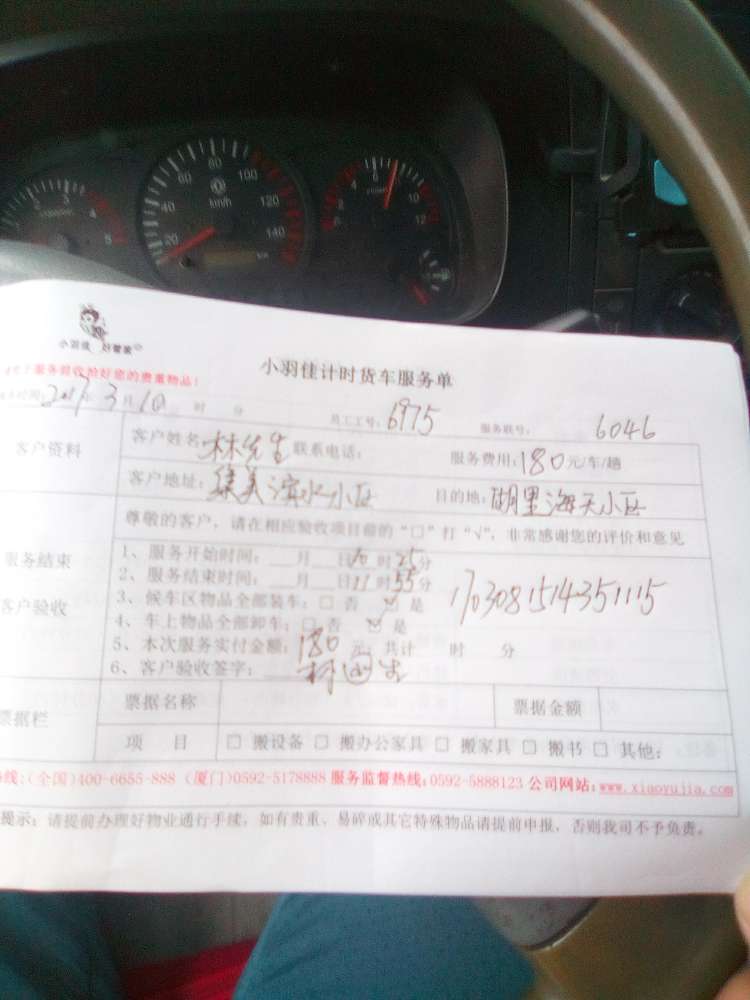 1 2 3 4 5
20 40 60 80 100 120 140
km/h
4 6 10 12
小羽佳 好管家
小羽佳计时货车服务单
服务前收拾好您的贵重物品!
时间: 2017年3月10 时 分 员工工号: 6975 服务联号: 6046
客户资料 客户姓名: 林先生 联系电话: 服务费用: 180元/车/趟
客户地址: 集美滨水小区 目的地: 湖里海天小区
尊敬的客户, 请在相应验收项目前的“□”打“√”, 非常感谢您的评价和意见
服务结束
客户验收
1、服务开始时间: 月 日10时25分
2、服务结束时间: 月 日11时55分
3、候车区物品全部装车: □ 否 ☑ 是
1703081514351115
4、车上物品全部卸车: □ 否 ☑ 是
5、本次服务实付金额: 180 元; 共计 时 分
6、客户验收签字:
票据栏 票据名称 票据金额
项 目 □ 搬设备 □ 搬办公家具 □ 搬家具 □ 搬书 □ 其他:
线:(全国)400-6655-888 (厦门)0592-5178888 服务监督热线:0592-5888123 公司网站:www.xiaoyujia.com
提示: 请提前办理好物业通行手续, 如有贵重、易碎或其它特殊物品请提前申报, 否则我司不予负责。